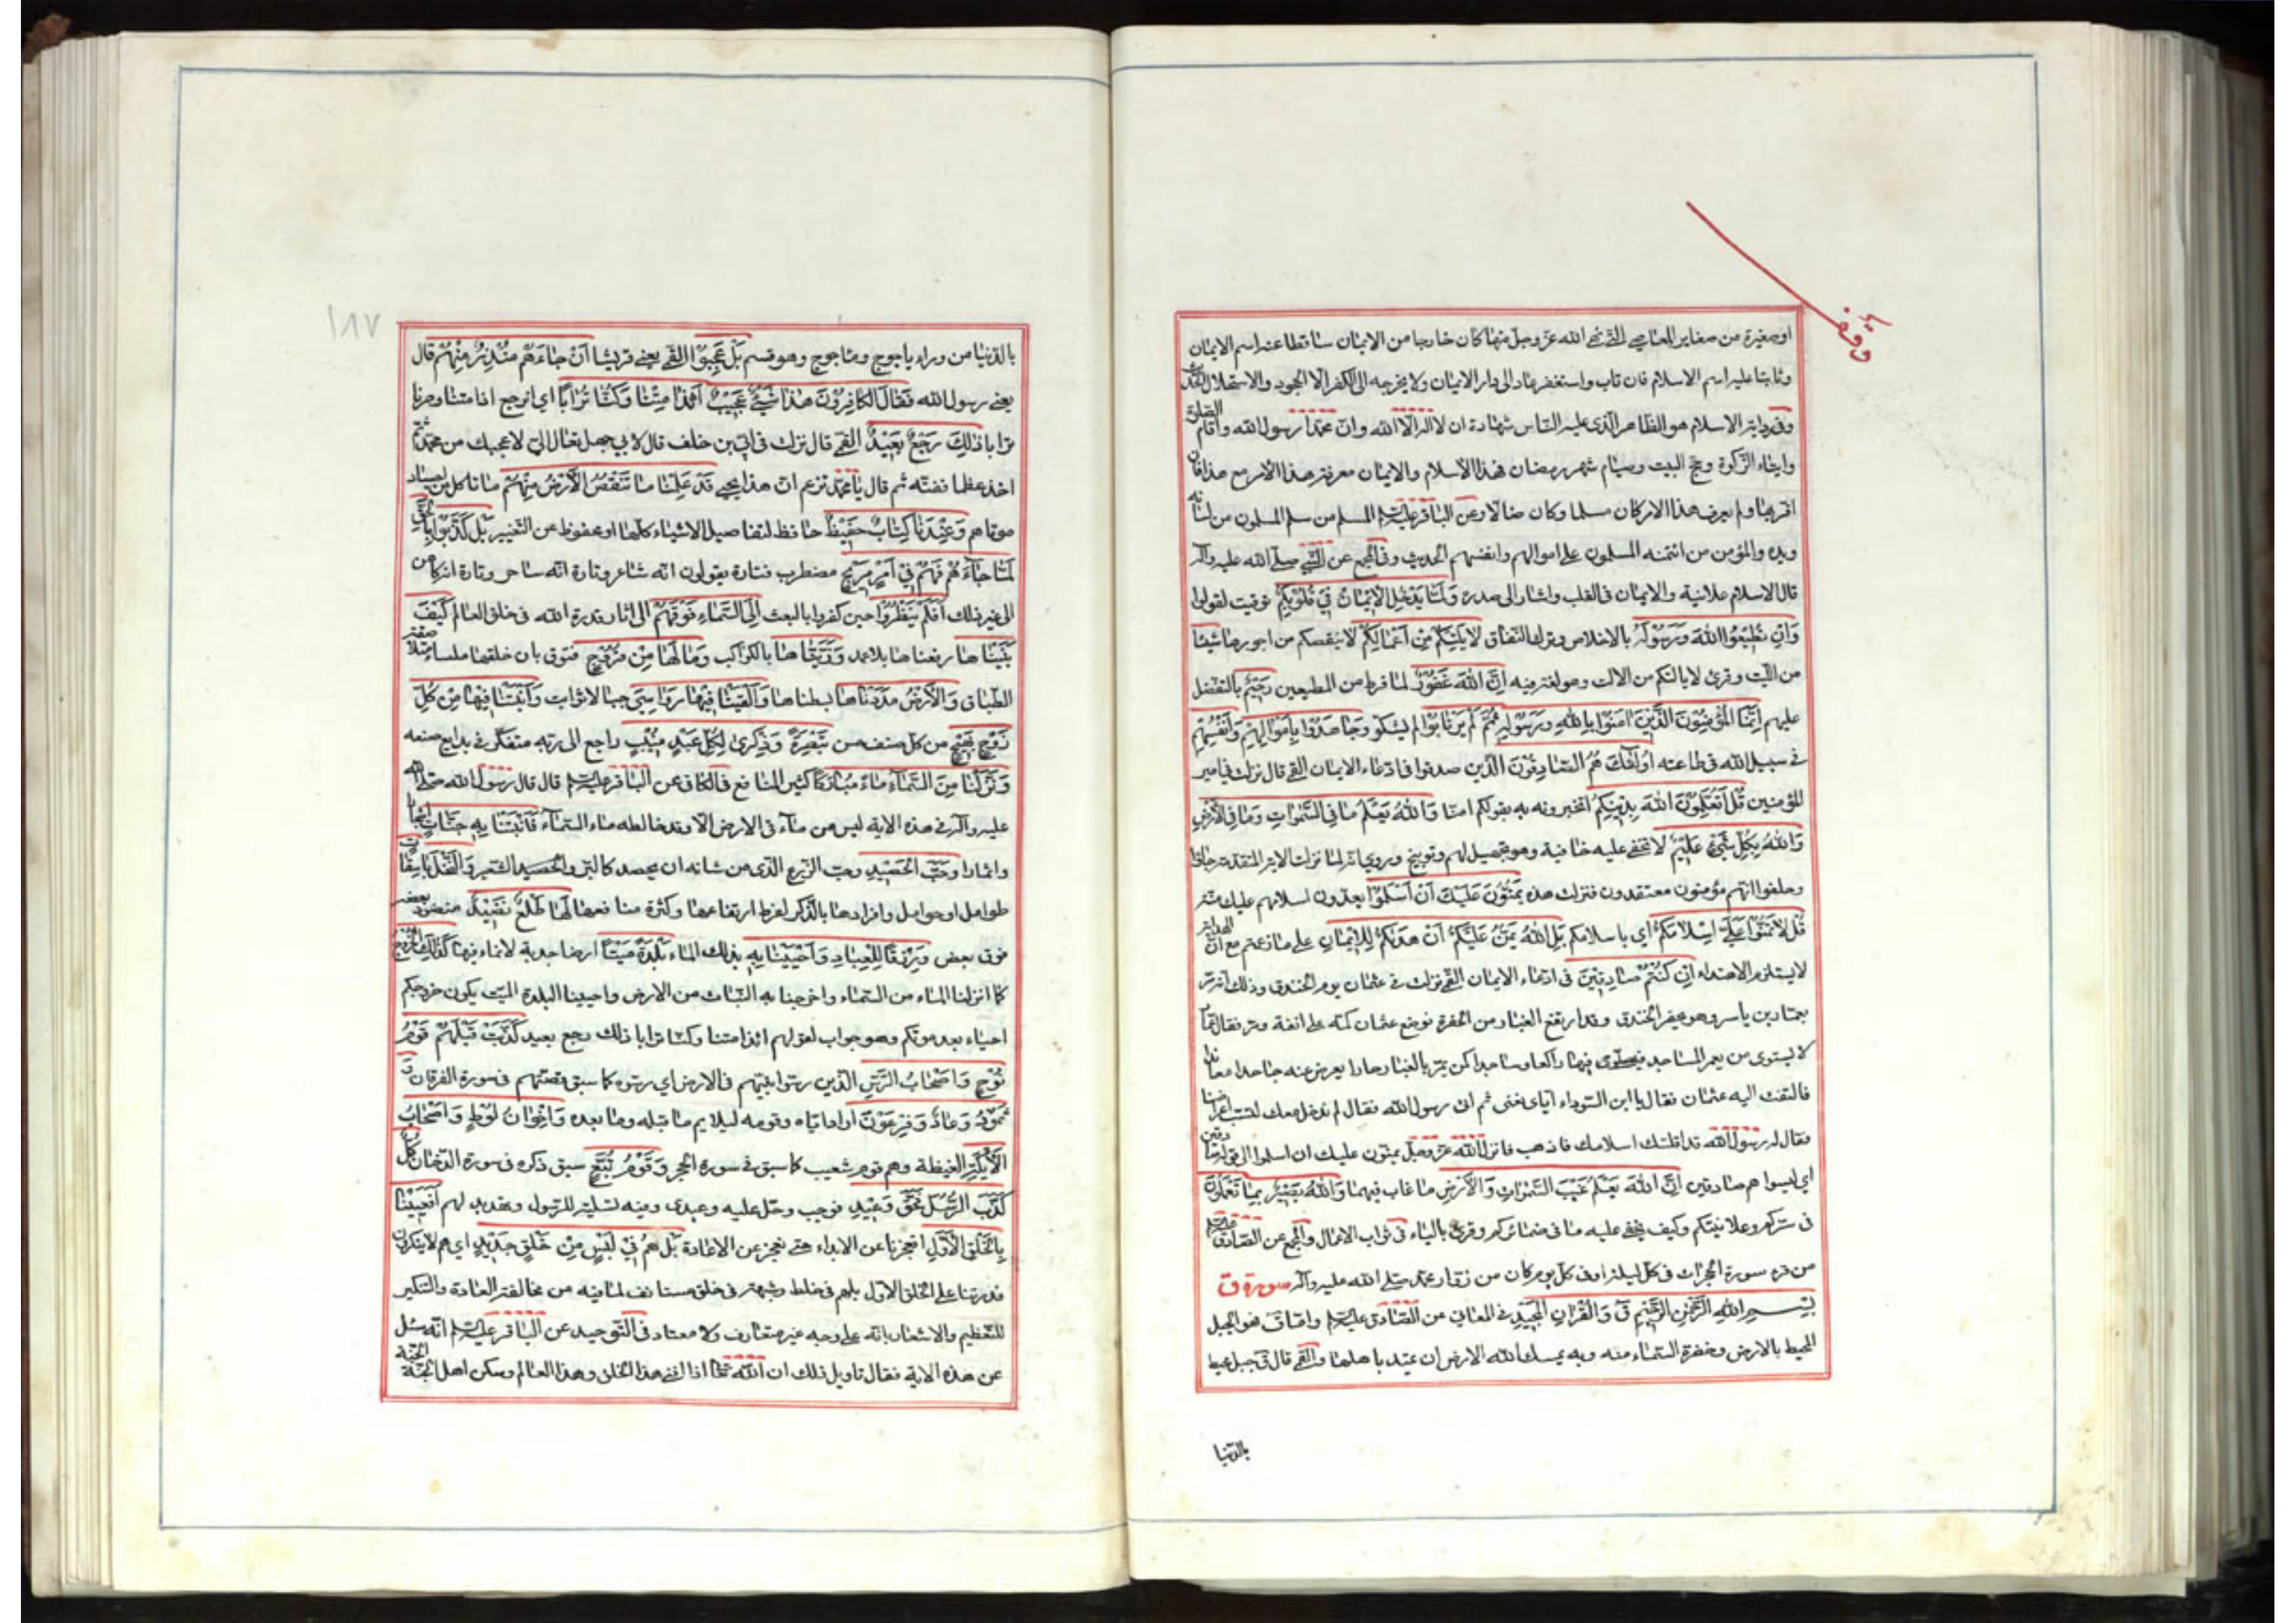 وقف
او صغيرة من صغاير المعاصي التي نهى الله عز وجل عنها كان خارجا من الايمان ساقطا عنه اسم الايمان
وثابتا عليه اسم الاسلام فان تاب واستغفر عاد الى دار الايمان ولا يخرجه الى الكفر الا الجحود والاستحلال الحديث
وفي رواية الاسلام هو الظاهر الذي عليه الناس شهادة ان لا اله الا الله وان محمدا رسول الله واقام الصلوة
وايتاء الزكوة وحج البيت وصيام شهر رمضان فهذا الاسلام والايمان معرفة هذا الامر مع هذا فان
اقر بها ولم يعرف هذا الامر كان مسلما وكان ضالا وعن الباقر عليه السلام المسلم من سلم المسلمون من لسانه
ويده والمؤمن من ائتمنه المسلمون على اموالهم وانفسهم الحديث وفي المجمع عن النبي صلى الله عليه وآله
قال الاسلام علانية والايمان في القلب واشار الى صدره وَلَمَّا يَدْخُلِ الْإِيمَانُ فِي قُلُوبِكُمْ توقيت لقولوا
وَاِنْ تُطِيعُوا اللهَ وَرَسُولَهُ بالاخلاص وترك النفاق لَا يَلِتْكُمْ مِنْ اَعْمَالِكُمْ لا ينقصكم من اجورها شيئا
من الليت وقرئ لا يالتكم من الالت وهو لغة فيه اِنَّ اللهَ غَفُورٌ لما فرط من المطيعين رَحِيمٌ بالتفضل
عليهم اِنَّمَا الْمُؤْمِنُونَ الَّذِينَ اٰمَنُوا بِاللهِ وَرَسُولِهِ ثُمَّ لَمْ يَرْتَابُوا لم يشكوا وَجَاهَدُوا بِاَمْوَالِهِمْ وَاَنْفُسِهِمْ
في سبيل الله في طاعته اُولٰئِكَ هُمُ الصَّادِقُونَ الذين صدقوا في ادعاء الايمان القمي قال نزلت في امير
المؤمنين قُلْ اَتُعَلِّمُونَ اللهَ بِدِينِكُمْ اتخبرونه به بقولكم امنا وَاللهُ يَعْلَمُ مَا فِي السَّمٰوَاتِ وَمَا فِي الْاَرْضِ
وَاللهُ بِكُلِّ شَيْءٍ عَلِيمٌ لا تخفى عليه خافية وهو تجهيل لهم وتوبيخ وروي انه لما نزلت الاية المتقدمة جاؤا
وحلفوا انهم مؤمنون معتقدون فنزلت هذه يَمُنُّونَ عَلَيْكَ اَنْ اَسْلَمُوا يعدون اسلامهم عليك منة
قُلْ لَا تَمُنُّوا عَلَيَّ اِسْلَامَكُمْ اي باسلامكم بَلِ اللهُ يَمُنُّ عَلَيْكُمْ اَنْ هَدٰىكُمْ لِلْاِيمَانِ على ما زعمتم مع ان الهداية
لا يستلزم الاهتداء اِنْ كُنْتُمْ صَادِقِينَ في ادعاء الايمان القمي نزلت في عثمان يوم الخندق وذلك انه مر
بعمار بن ياسر وهو يحفر الخندق وقد ارتفع الغبار من الحفرة فوضع عثمان كمه على انفه ومر فقال عمار
لا يستوي من يعمر المساجد فيصلي فيها راكعا وساجدا كمن يمر بالغبار حايدا يعرض عنه جاحدا معاندا
فالتفت اليه عثمان فقال يا ابن السوداء اياي تعني ثم اتى رسول الله فقال لم ندخل معك لتسب اعراضنا
فقال له رسول الله قد اقلتك اسلامك فاذهب فانزل الله عز وجل يمنون عليك ان اسلموا الى قوله صادقين
اي ليسوا هم صادقين اِنَّ اللهَ يَعْلَمُ غَيْبَ السَّمٰوَاتِ وَالْاَرْضِ ما غاب فيهما وَاللهُ بَصِيرٌ بِمَا تَعْمَلُونَ
في سركم وعلانيتكم وكيف يخفى عليه ما في ضمائركم وقرئ بالياء في ثواب الاعمال والمجمع عن الصادق عليه السلام
من قرء سورة الحجرات في كل ليلة او في كل يوم كان من زوار محمد صلى الله عليه وآله سورة ق
بِسْمِ اللهِ الرَّحْمٰنِ الرَّحِيمِ ق وَالْقُرْاٰنِ الْمَجِيدِ في المعاني عن الصادق عليه السلام واما ق فهو الجبل
المحيط بالارض وخضرة السماء منه وبه يمسك الله الارض ان تميد باهلها والقمي قال ق جبل محيط
بالدنيا
١٨٧
بالدنيا من وراء ياجوج وماجوج وهو قسم بَلْ عَجِبُوا القمي يعني قريشا اَنْ جَاءَهُمْ مُنْذِرٌ مِنْهُمْ قال
يعني رسول الله فَقَالَ الْكَافِرُونَ هٰذَا شَيْءٌ عَجِيبٌ اَئِذَا مِتْنَا وَكُنَّا تُرَابًا اي انرجع اذا متنا وصرنا
ترابا ذٰلِكَ رَجْعٌ بَعِيدٌ القمي قال نزلت في ابي بن خلف قال لابي جهل تعال الي لاعجبك من محمد ثم
اخذ عظما ففته ثم قال يا محمد تزعم ان هذا يحيى قَدْ عَلِمْنَا مَا تَنْقُصُ الْاَرْضُ مِنْهُمْ ما تاكل من اجساد
موتاهم وَعِنْدَنَا كِتَابٌ حَفِيظٌ حافظ لتفاصيل الاشياء كلها او محفوظ عن التغيير بَلْ كَذَّبُوا بِالْحَقِّ
لَمَّا جَاءَهُمْ فَهُمْ فِي اَمْرٍ مَرِيجٍ مضطرب فتارة يقولون انه شاعر وتارة انه ساحر وتارة انه كاهن
الى غير ذلك اَفَلَمْ يَنْظُرُوا حين كفروا بالبعث اِلَى السَّمَاءِ فَوْقَهُمْ الى اثار قدرة الله في خلق العالم كَيْفَ
بَنَيْنَاهَا رفعناها بلا عمد وَزَيَّنَّاهَا بالكواكب وَمَا لَهَا مِنْ فُرُوجٍ فتوق بان خلقها ملساء متلاصقة
الطباق وَالْاَرْضَ مَدَدْنَاهَا بسطناها وَاَلْقَيْنَا فِيهَا رَوَاسِيَ جبالا ثوابت وَاَنْبَتْنَا فِيهَا مِنْ كُلِّ
زَوْجٍ بَهِيجٍ من كل صنف حسن تَبْصِرَةً وَذِكْرٰى لِكُلِّ عَبْدٍ مُنِيبٍ راجع الى ربه متفكر في بدايع صنعه
وَنَزَّلْنَا مِنَ السَّمَاءِ مَاءً مُبَارَكًا كثير المنافع في الكافي عن الباقر عليه السلام قال قال رسول الله صلى الله
عليه وآله في هذه الاية ليس من ماء في الارض الا وقد خالطه ماء السماء فَاَنْبَتْنَا بِهِ جَنَّاتٍ اشجارا
واثمارا وَحَبَّ الْحَصِيدِ وحب الزرع الذي من شانه ان يحصد كالبر والحصيد الشعير وَالنَّخْلَ بَاسِقَاتٍ
طوالا او حوامل وافرادها بالذكر لفرط ارتفاعها وكثرة منافعها لَهَا طَلْعٌ نَضِيدٌ منضود بعضه
فوق بعض رِزْقًا لِلْعِبَادِ وَاَحْيَيْنَا بِهِ بذلك الماء بَلْدَةً مَيْتًا ارضا جدبة لا نماء فيها كَذٰلِكَ الْخُرُوجُ
كما انزلنا الماء من السماء واخرجنا به النبات من الارض واحيينا البلدة الميت يكون خروجكم
احياء بعد موتكم وهو جواب لقولهم ائذا متنا وكنا ترابا ذلك رجع بعيد كَذَّبَتْ قَبْلَهُمْ قَوْمُ
نُوحٍ وَاَصْحَابُ الرَّسِّ الذين رسوا نبيهم في الارض اي رسوه كما سبق قصتهم في سورة الفرقان وَ
ثَمُودُ وَعَادٌ وَفِرْعَوْنُ اراد اياه وقومه ليلايم ما قبله وما بعده وَاِخْوَانُ لُوطٍ وَاَصْحَابُ
الْاَيْكَةِ الغيظة وهم قوم شعيب كما سبق في سورة الحجر وَقَوْمُ تُبَّعٍ سبق ذكره في سورة الدخان كُلٌّ
كَذَّبَ الرُّسُلَ فَحَقَّ وَعِيدِ فوجب وحل عليه وعيدي وفيه تسلية للرسول وتهديد لهم اَفَعَيِينَا
بِالْخَلْقِ الْاَوَّلِ افعجزنا عن الابداء حتى نعجز عن الاعادة بَلْ هُمْ فِي لَبْسٍ مِنْ خَلْقٍ جَدِيدٍ اي هم لا ينكرون
قدرتنا على الخلق الاول بل هم في خلط وشبهة في خلق مستانف لما فيه من مخالفة العادة والتنكير
للتعظيم والاشعار بانه على وجه غير متعارف ولا معتاد في التوحيد عن الباقر عليه السلام انه سئل
عن هذه الاية فقال تاويل ذلك ان الله تعالى اذا افنى هذا الخلق وهذا العالم وسكن اهل الجنة الجنة